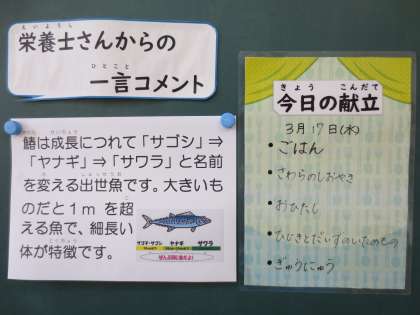 栄養士さんからの
一言コメント
鰆は成長につれて「サゴシ」⇒
「ヤナギ」⇒「サワラ」と名前
を変える出世魚です。大きいも
のだと1mを超
える魚で、細長い
体が特徴です。
サゴチ・サゴシ ヤナギ サワラ
ぜんぶ同じ魚だよ!
今日の献立
3月17日(木)
・ごはん
・さわらのしおやき
・おひたし
・ひじきとだいずのいためもの
・ぎゅうにゅう